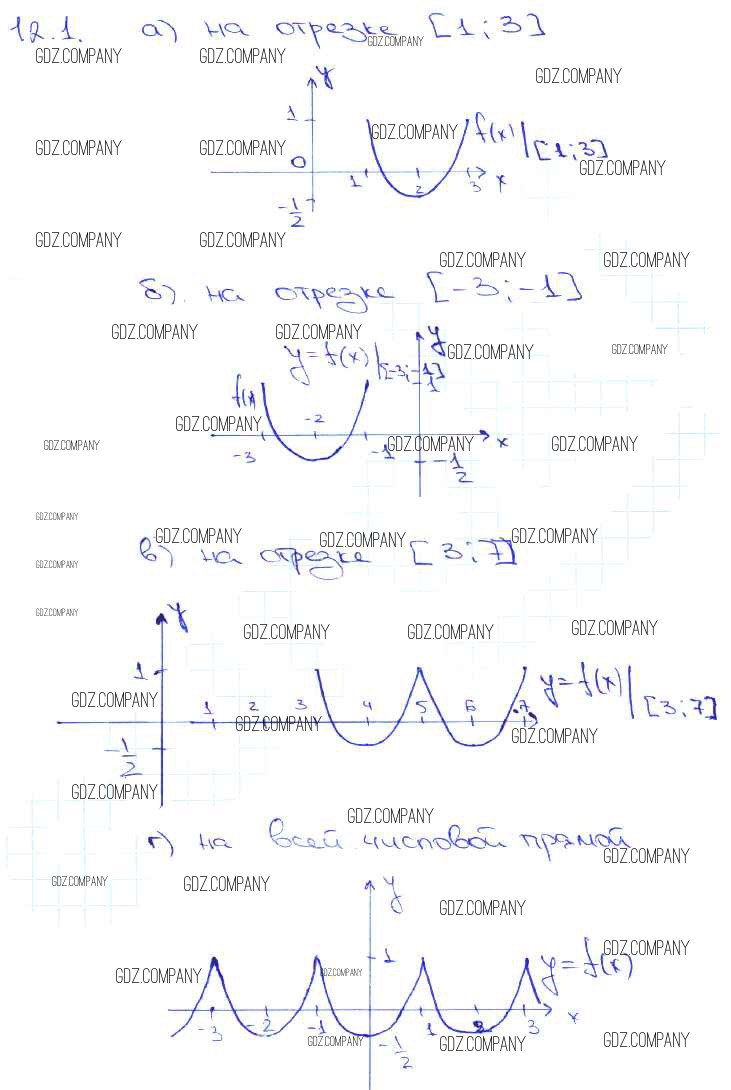 12.1. а) на отрезке [1; 3]
GDZ.COMPANY GDZ.COMPANY GDZ.COMPANY
y GDZ.COMPANY
1
GDZ.COMPANY f(x)|[1; 3]
GDZ.COMPANY GDZ.COMPANY
0 GDZ.COMPANY
1 2 3 x
-1/2
GDZ.COMPANY GDZ.COMPANY
GDZ.COMPANY GDZ.COMPANY
б). на отрезке [-3; -1]
GDZ.COMPANY GDZ.COMPANY y
y=f(x)|[-3; -1] GDZ.COMPANY GDZ.COMPANY
1
f(x)
GDZ.COMPANY -2
GDZ.COMPANY GDZ.COMPANY GDZ.COMPANY x
-3 -1 -1/2
GDZ.COMPANY
GDZ.COMPANY GDZ.COMPANY GDZ.COMPANY
в) на отрезке [3; 7]
GDZ.COMPANY
GDZ.COMPANY y
GDZ.COMPANY GDZ.COMPANY GDZ.COMPANY
1 y=f(x)|[3; 7]
GDZ.COMPANY 1 2 3 4 5 6 7
GDZ.COMPANY GDZ.COMPANY
-1/2
GDZ.COMPANY
GDZ.COMPANY
г) на всей числовой прямой
GDZ.COMPANY
GDZ.COMPANY GDZ.COMPANY y
GDZ.COMPANY
1 GDZ.COMPANY
GDZ.COMPANY GDZ.COMPANY y=f(x)
-3 -2 -1 1 2 3 x
GDZ.COMPANY -1/2 GDZ.COMPANY GDZ.COMPANY